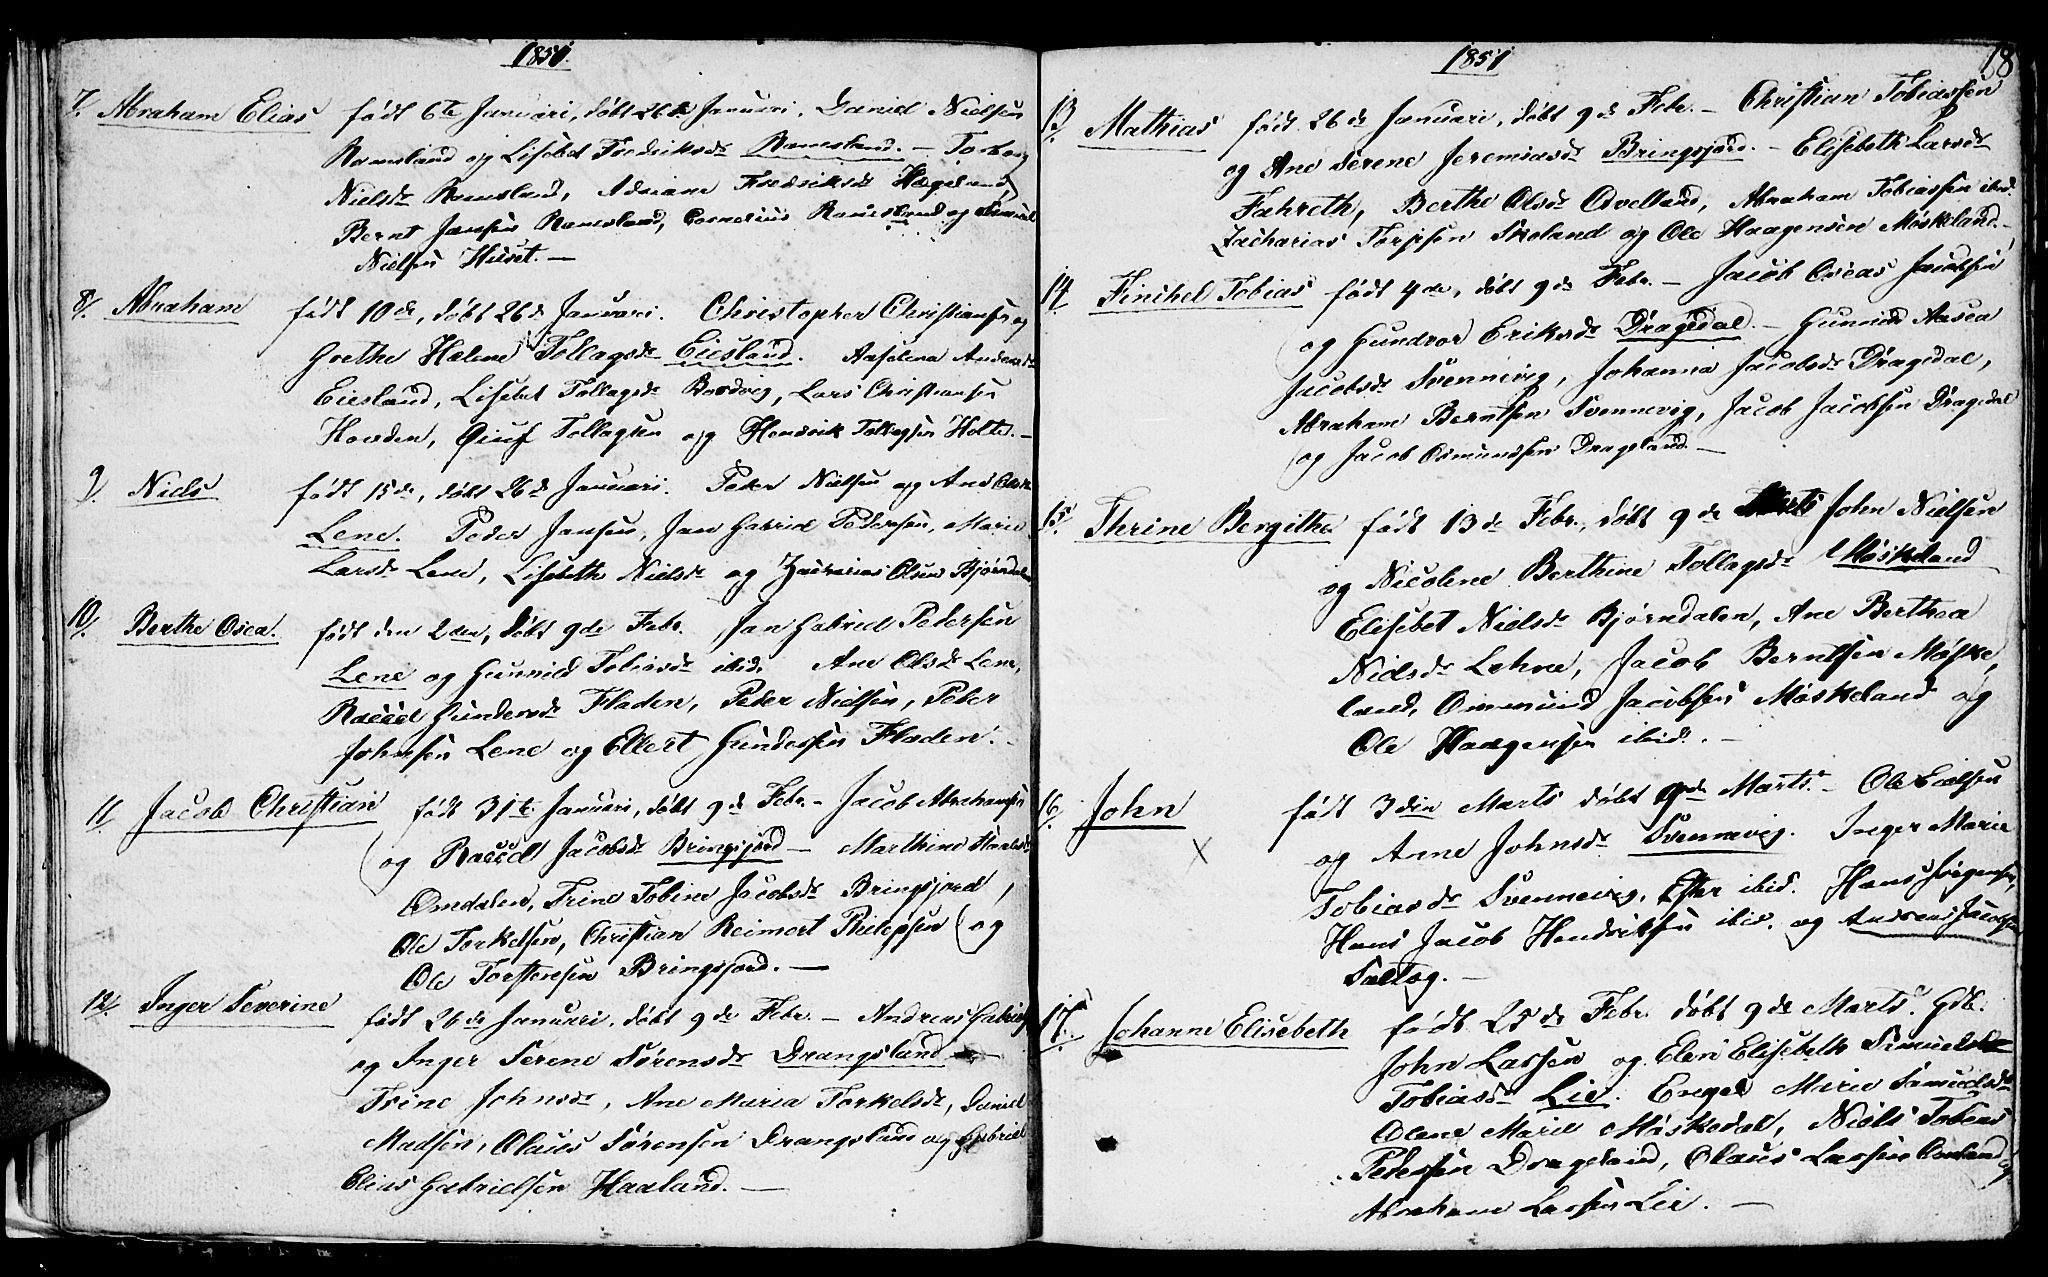 1851.
7. Abraham Elias født 6te Januari, døbt 26de Januari. Daniel Nielsen
Ramsland og Lisebet Fredriksdr Ramsland. — Torborg
Nielsdr Ramsland, Adriane Fredriksdr Hægeland,
Bernt Jansen Ramsland, Cornelius Ramsland og Samuel
Nielsen Huset. —
8/. Abraham født 10de, døbt 26de Januari. Christopher Christiansen og
Grethe Helene Tollagsdr Eiesland. Aaselena Andersdr
Eiesland, Lisebet Tollagsdr Bordvig, Lars Christiansen
Houden, Tollagsen og Hendrik Tollagsen Holte. —
9/. Niels født 15de, døbt 26de Januari. Peder Nielsen og Ane Olsdr
Lene. Peder Jansen, Jan Gabriel Pedersen, Marie
Larsdr Lene, Lisebeth Nielsdr og Zacharias Olsen Bjørndalen
10/. Berthe Osea. født den 2den, døbt 9de Febr. Jan Gabriel Pedersen
Lene og Gunnild Tobiasdr ibid. Ane Olsdr Lene,
Rachel Gundersdr Fladen, Peder Nielsen, Peder
Johnsen Lene og Ellert Gundersen Fladen. -
11. Jacob Christian født 31te Januari, døbt 9de Febr. - Jacob Abrahamsen
og Rachel Jacobsdr Bringsjord — Marthine
Omdalen, Trine Tobine Jacobsdr Bringsjord,
Ole Torkelsen, Christian Reimert Philepsen og
Ole Torstensen Bringsjord. —
12/. Inger Severine født 26de Januari, døbt 9de Febr. — Andreas Gabriels
og Inger Serene Sørensdr Drangsland —
Trine Johnsdr, Ane Maria Torkelsdr, Daniel
Madsen, Olaus Sørensen Drangsland og Gabriel
Elias Gabrielsen Haaland. —
1851 18
13/. Mathias født 26de Januari, døbt 9de Febr. — Christian Tobiassen
og Ane Serene Jeremiasdr Bringsjord. — Elisebeth Larsdr
Fahreth, Berthe Olsdr Qvelland, Abraham Tobiassen ibid.
Zacharias Torjesen Skoland og Ole Haagensen Møskeland. -
14. Tobias født 4de, døbt 9de Febr. — Jacob Oseas Jacobsen
og Gundvor Eriksdr Dragedal. — Gunild Aasea
Jacobsdr Svennevig, Johanna Jacobsdr Dragedal,
Abraham Berntsen Svennevig, Jacob Jacobsen Dragedal
og Jacob Osmundsen Drageland. —
15. Thrine Bergithe født 13de Febr., døbt 9de Marts John Nielsen
og Nicolene Berthine Tollagsdr Møskeland
Elisebet Nielsdr Bjørndalen, Ane Berthea
Nielsdr Lehne, Jacob Berntsen Møske,
land, Ommund Jacobsen Møskeland og
Ole Haagensen ibid. —
16/. John født 3din Marts døbt 9de Marts. — Ole
X og Anne Johnsdr Svennevig. Inger Marie
Tobiasdr Svennevig, Ester ibid. Hans Jørgensen,
Hans Jacob Hendriksen ibid. og Andreas Jacobsen
—
17. Johanne Elisebeth født 25de Febr. døbt 9de Marts. Gdb.
John Lassen og Eleni Elisebeth
Tobiasdr Lie. Engel Marie Samuelsdr
Olene Marie Møskedal, Niels Tobias
Pedersen Drageland, Olaus Lassen Omland og
Abraham Lassen Lie. —